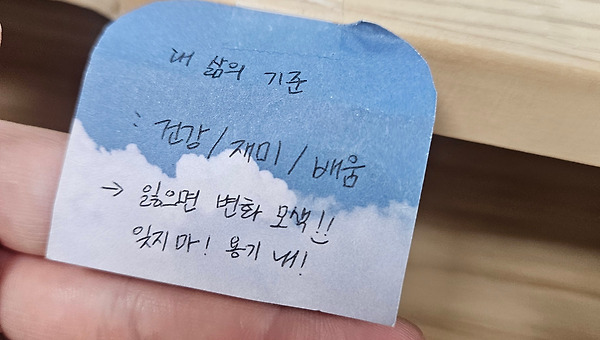 내 삶의 기준
: 건강 / 재미 / 배움
→ 잃으면 변화 모색!!
잊지마! 용기 내!